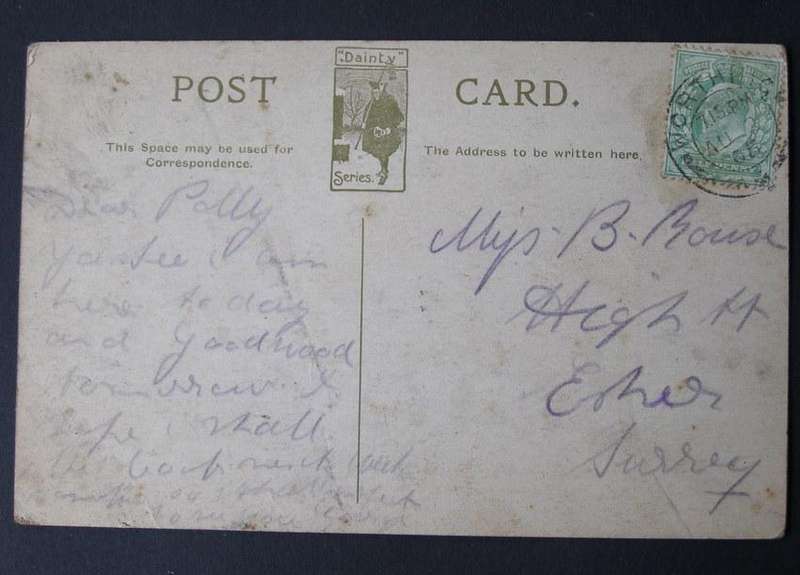 POST CARD.
"Dainty"
Series.
This Space may be used for
Correspondence.
The Address to be written here.
WORTHING
7.15 PM
Dear Polly
you see i am
here to day
and Goodwood
tomorrow &
hope i shall
be back next week
Miss B. Rouse
High St
Esher
Surrey